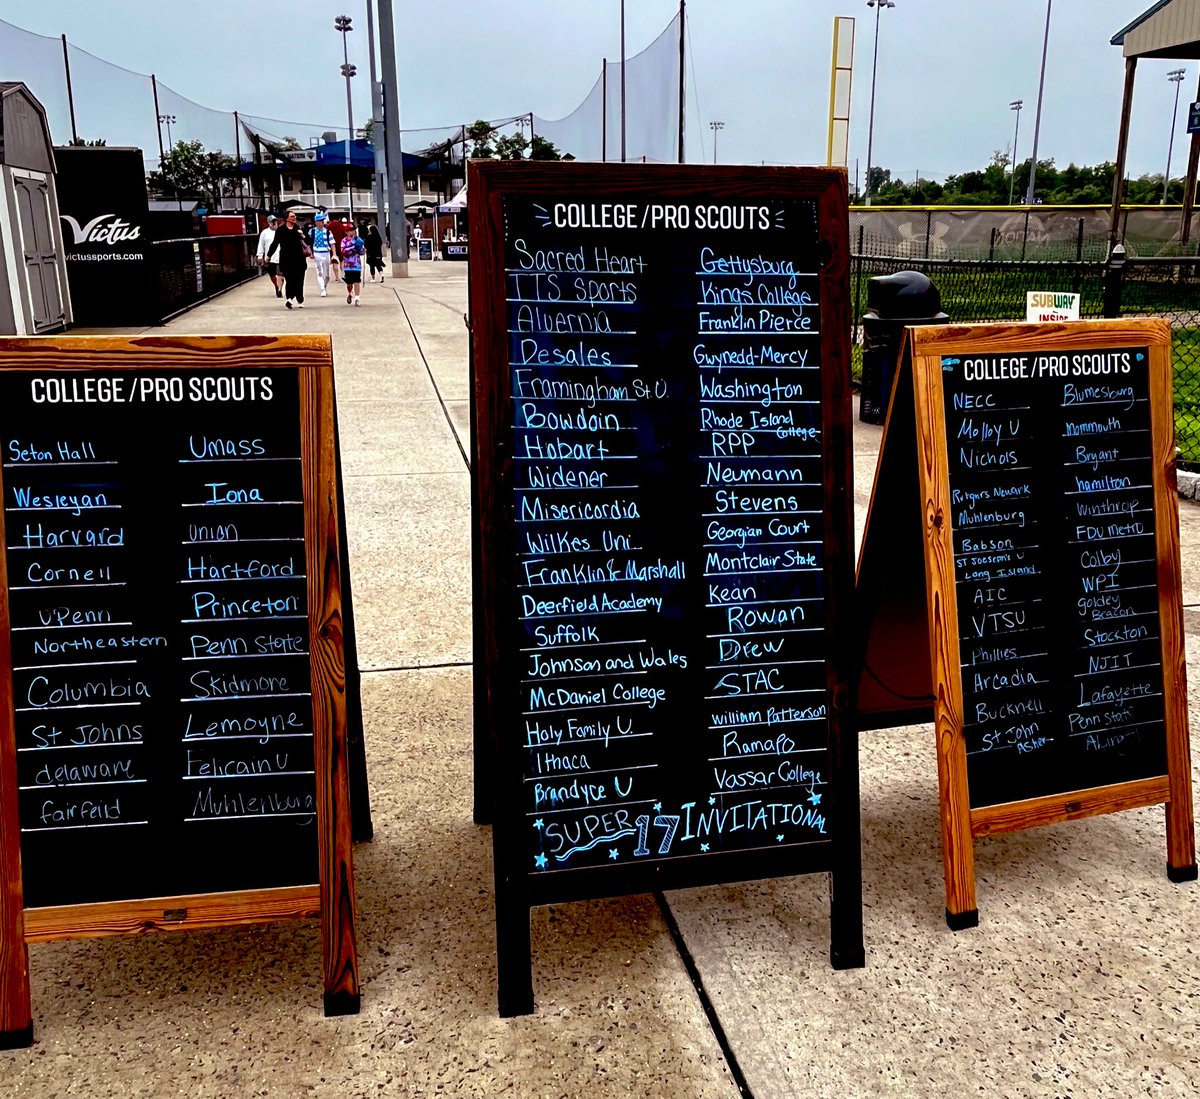 Victus
victussports.com
SUBWAY
INSIDE
COLLEGE/PRO SCOUTS
Seton Hall
Wesleyan
Harvard
Cornell
UPenn
Northeastern
Columbia
St Johns
delaware
fairfeild
Umass
Iona
union
Hartford
Princeton
Penn State
Skidmore
Lemoyne
Felicain U
Muhlenburg
COLLEGE/PRO SCOUTS
Sacred Heart
TTS Sports
Alvernia
Desales
Framingham St. U.
Bowdoin
Hobart
Widener
Misericordia
Wilkes Uni.
Franklin & Marshall
Deerfield Academy
Suffolk
Johnson and Wales
McDaniel College
Holy Family U.
Ithaca
Brandyce U
Gettysburg
Kings College
Franklin Pierce
Gwynedd-Mercy
Washington
Rhode Island
College
RPP
Neumann
Stevens
Georgian Court
Montclair State
Kean
Rowan
Drew
STAC
William Patterson
Ramapo
Vassar College
SUPER 17 INVITATIONAL
COLLEGE/PRO SCOUTS
NECC
Molloy U
Nichols
Rutgurs Newark
Muhlenburg
Babson
ST Joeseph's U
Long Island
AIC
VTSU
Phillies
Arcadia
Bucknell
St John
Fisher
Blumesburg
Monmouth
Bryant
hamilton
Winthrop
FDU Metro
Colby
WPI
goldey
Beacon
Stockton
NJIT
Lafayette
Penn State